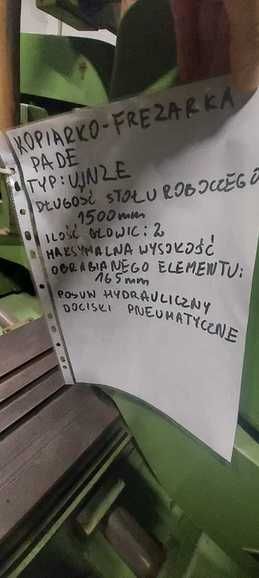 KOPIARKO-FREZARKA
PADE
TYP: UNZE
DŁUGOŚĆ STOŁU ROBOCZEGO
1500mm
ILOŚĆ GŁOWIC: 2
MAKSYMALNA WYSOKOŚĆ
OBRABIANEGO ELEMENTU:
165mm
POSUW HYDRAULICZNY
DOCISKI PNEUMATYCZNE